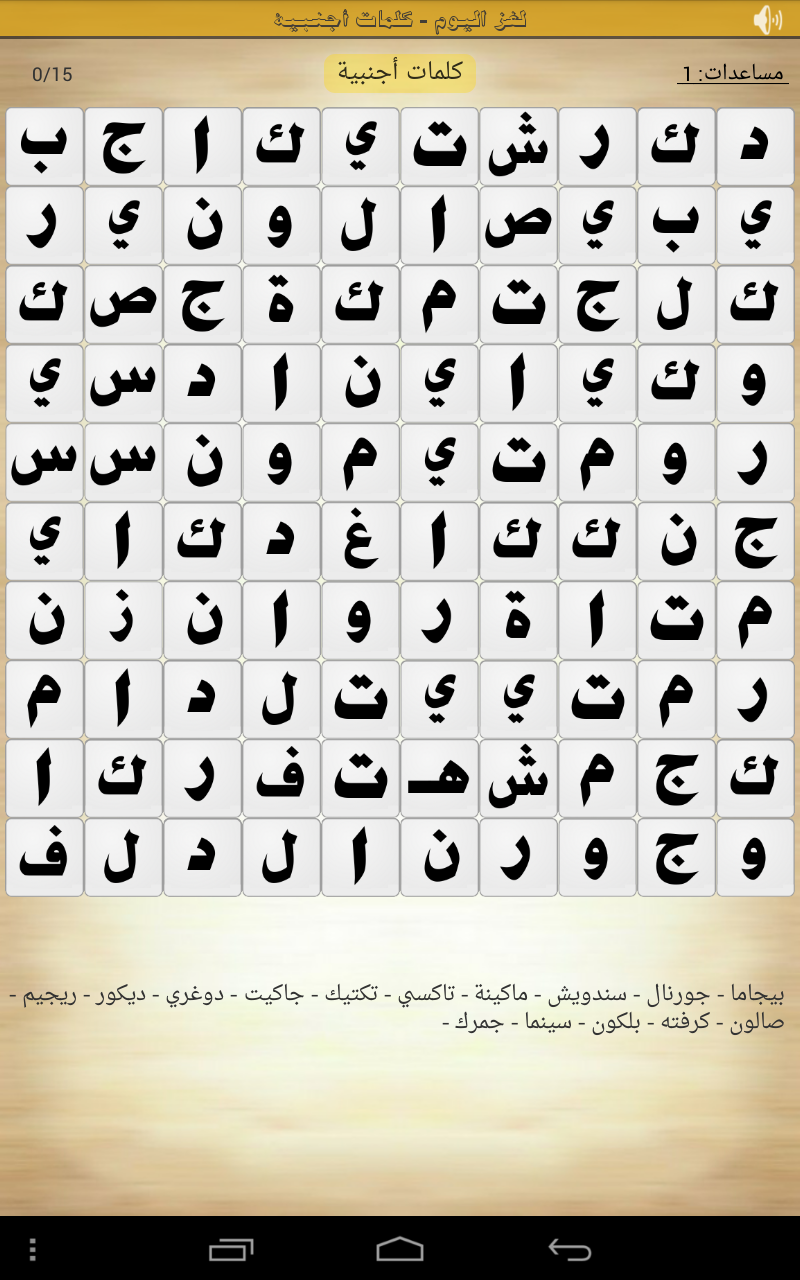 لغز اليوم - كلمات أجنبية
مساعدات: 1
كلمات أجنبية
0/15
د ك ر ش ت ي ك ا ج ب
ي ب ي ص ا ل و ن ي ر
ك ل ج ت م ك ة ج ص ك
و ك ي ا ي ن ا د س ي
ر و م ت ي م و ن س س
ج ن ك ك ا غ د ك ا ي
م ت ا ة ر و ا ن ز ن
ر م ت ي ي ت ل د ا م
ك ج م ش هـ ت ف ر ك ا
و ج و ر ن ا ل د ل ف
بيجاما - جورنال - سندويش - ماكينة - تاكسي - تكتيك - جاكيت - دوغري - ديكور - ريجيم -
صالون - كرفته - بلكون - سينما - جمرك -